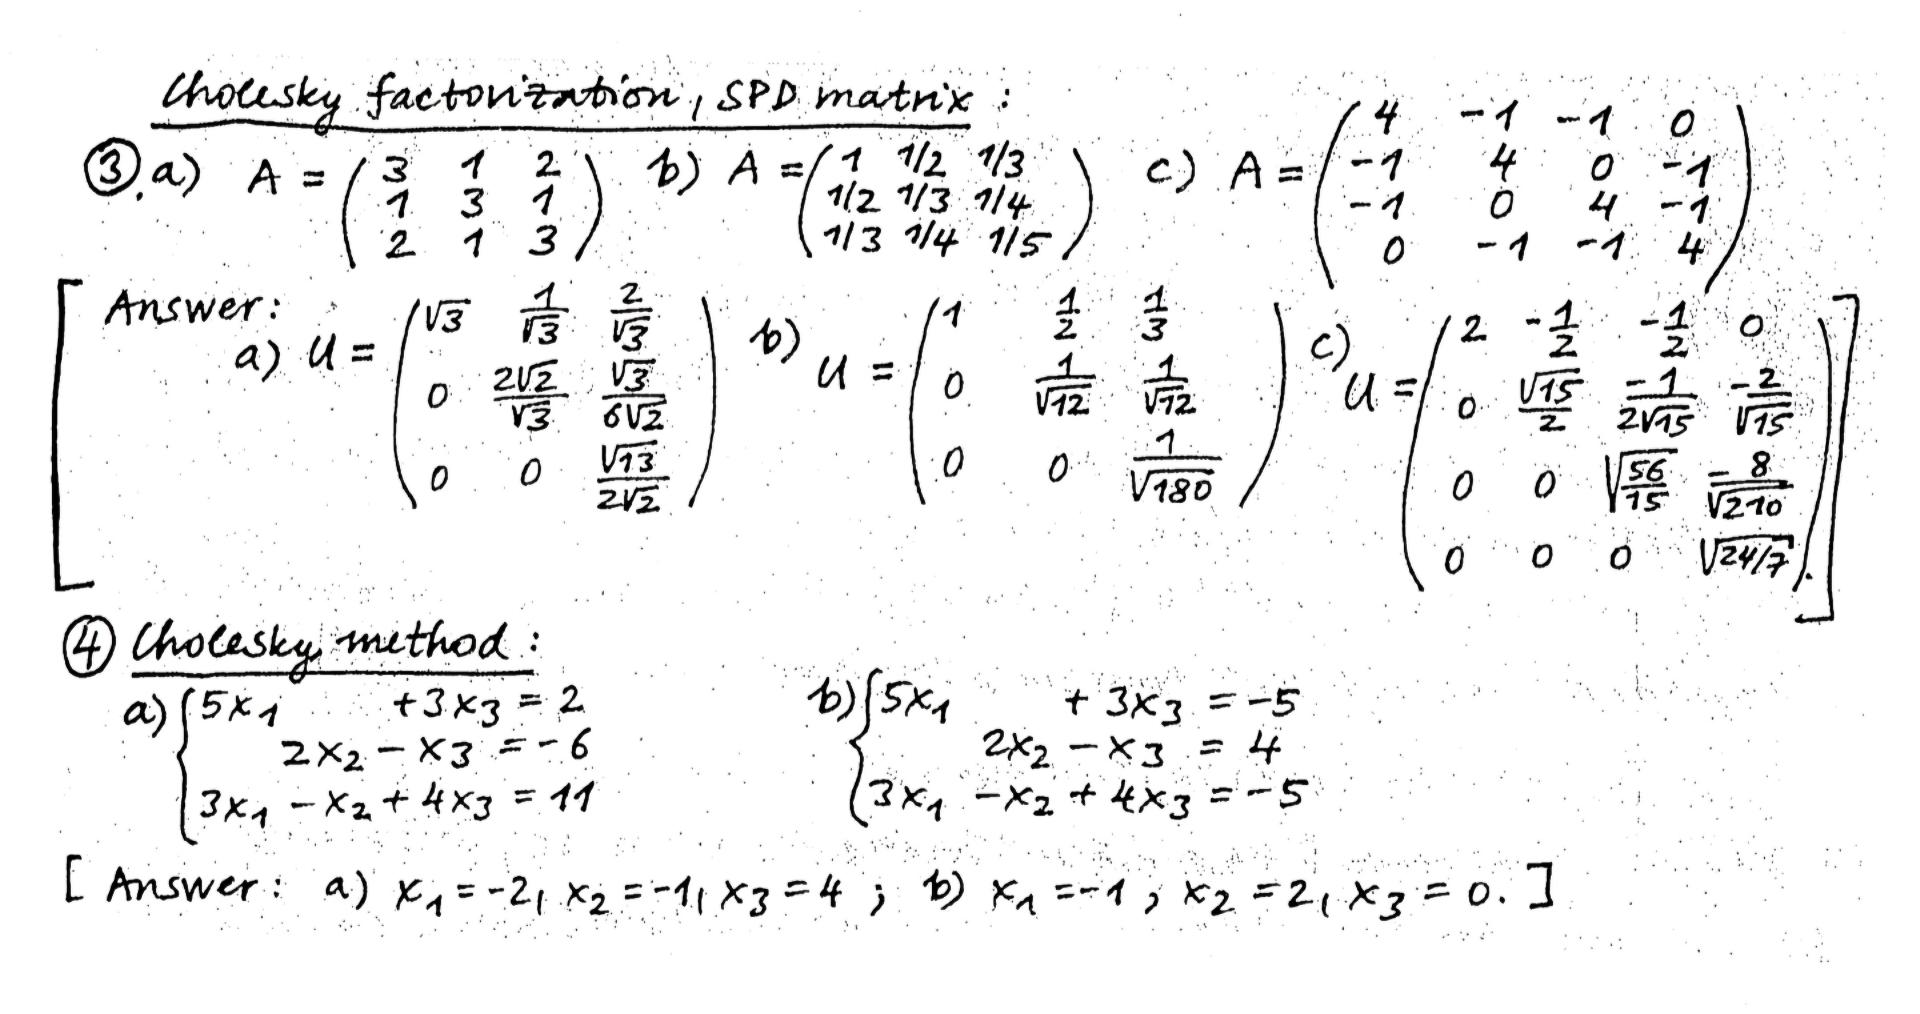 Cholesky factorization, SPD matrix :
③.a) A = ( 3 1 2 ; 1 3 1 ; 2 1 3 ) b) A = ( 1 1/2 1/3 ; 1/2 1/3 1/4 ; 1/3 1/4 1/5 ) c) A = ( 4 -1 -1 0 ; -1 4 0 -1 ; -1 0 4 -1 ; 0 -1 -1 4 )
[ Answer:
a) U = ( √3 1/√3 2/√3 ; 0 2√2/√3 √3/6√2 ; 0 0 √13/2√2 ) b) U = ( 1 1/2 1/3 ; 0 1/√12 1/√12 ; 0 0 1/√180 ) c) U = ( 2 -1/2 -1/2 0 ; 0 √15/2 -1/2√15 -2/√15 ; 0 0 √56/15 -8/√210 ; 0 0 0 √24/7 ). ]
④ Cholesky method :
a) { 5x₁ +3x₃ = 2 b) { 5x₁ + 3x₃ = -5
2x₂ - x₃ = -6 2x₂ - x₃ = 4
3x₁ - x₂ + 4x₃ = 11 3x₁ - x₂ + 4x₃ = -5
[ Answer: a) x₁ = -2, x₂ = -1, x₃ = 4 ; b) x₁ = -1, x₂ = 2, x₃ = 0. ]